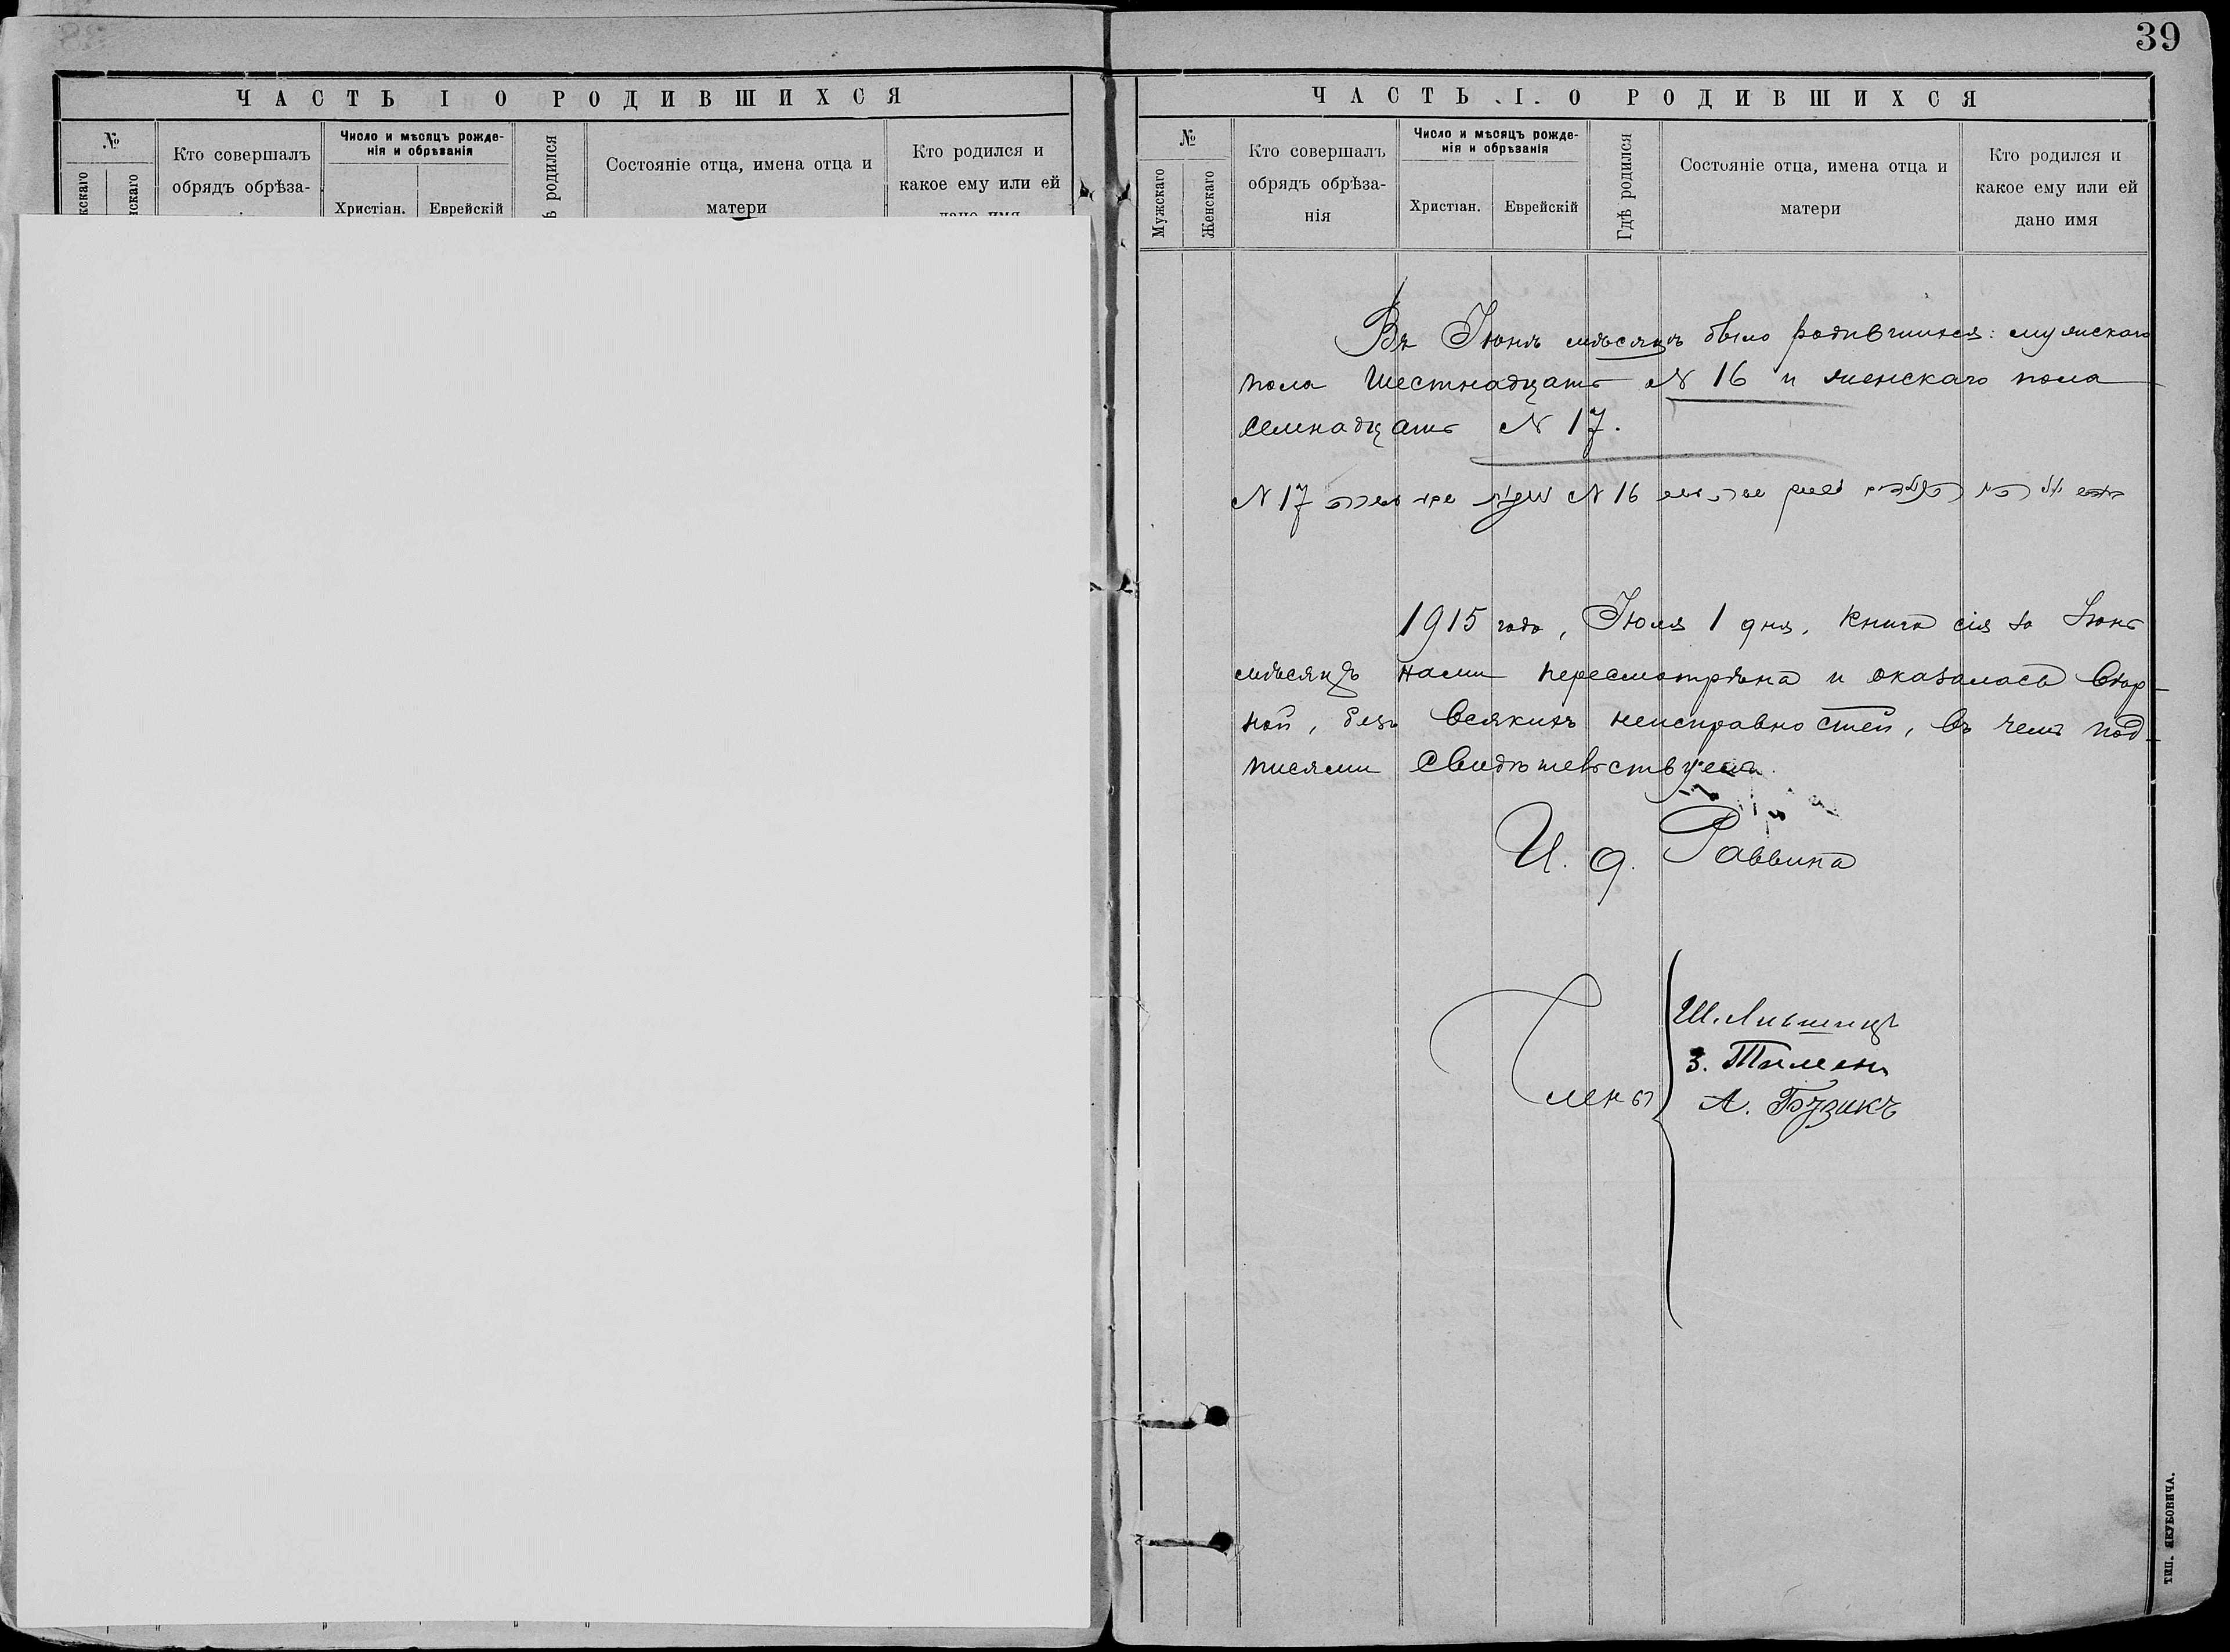 39
ЧАСТЬ I О РОДИВШИХСЯ
№
Кто совершалъ
обрядъ обрѣза-
Число и мѣсяцъ рожде-
нія и обрѣзанія
Христіан.
Еврейскій
родился
Состояніе отца, имена отца и
матери
Кто родился и
какое ему или ей
дано имя
ЧАСТЬ I. О РОДИВШИХСЯ
№
Мужскаго
Женскаго
Кто совершалъ
обрядъ обрѣза-
нія
Число и мѣсяцъ рожде-
нія и обрѣзанія
Христіан.
Еврейскій
Гдѣ родился
Состояніе отца, имена отца и
матери
Кто родился и
какое ему или ей
дано имя
Въ Іюнѣ мѣсяцѣ было родившихся: мужскаго
пола шестнадцать № 16 и женскаго пола
семнадцать № 17.
№ 17 № 16
1915 года, Іюля 1 дня. Книга сія за Іюнь
мѣсяцъ нами пересмотрѣна и оказалась вѣр-
ной, безъ всякихъ неисправностей, въ чемъ под-
писями свидѣтельствуемъ.
И. д. Раввина
Члены
Ш. Лившицъ
З.
А. Бузикъ
ТИП. ЯКУБОВИЧА.